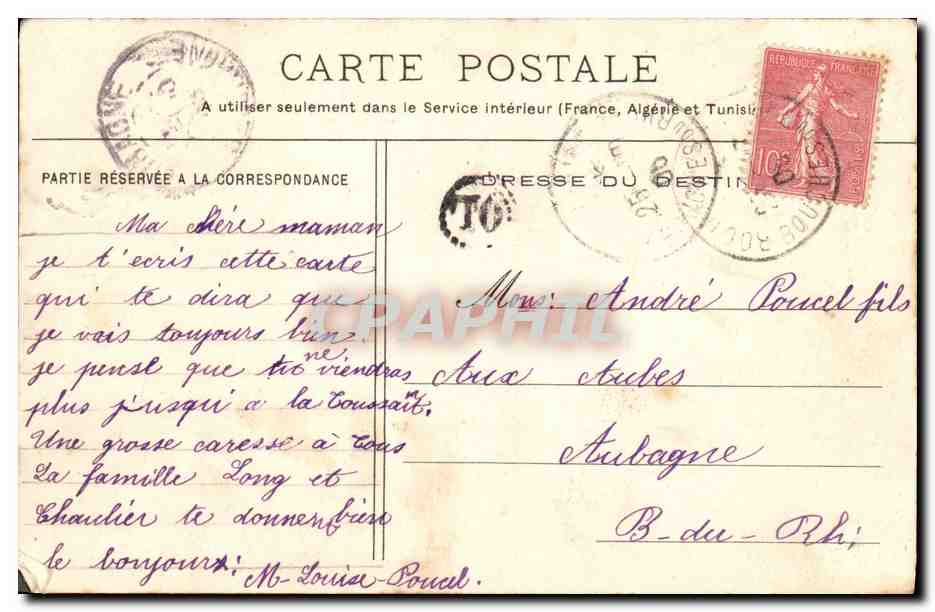 CARTE POSTALE
A utiliser seulement dans le Service intérieur (France, Algérie et Tunisie
RÉPUBLIQUE FRANÇAISE
10
TO
25
AUBAGNE
PARTIE RÉSERVÉE A LA CORRESPONDANCE
ADRESSE DU DESTIN
Ma chére maman
je t'ecris cette carte
qui te dira que
je vais toujours bien.
je pense que tu ne viendras
plus jusqu'a la Toussaint.
Une grosse caresse à tous
La famille Long et
Chaulier te donnent bien
le bonjour:
M-Louise-Poucel.
Mons: André Poucel fils
Aux Aubes
Aubagne
B-du-Rh:
CPAPHIL